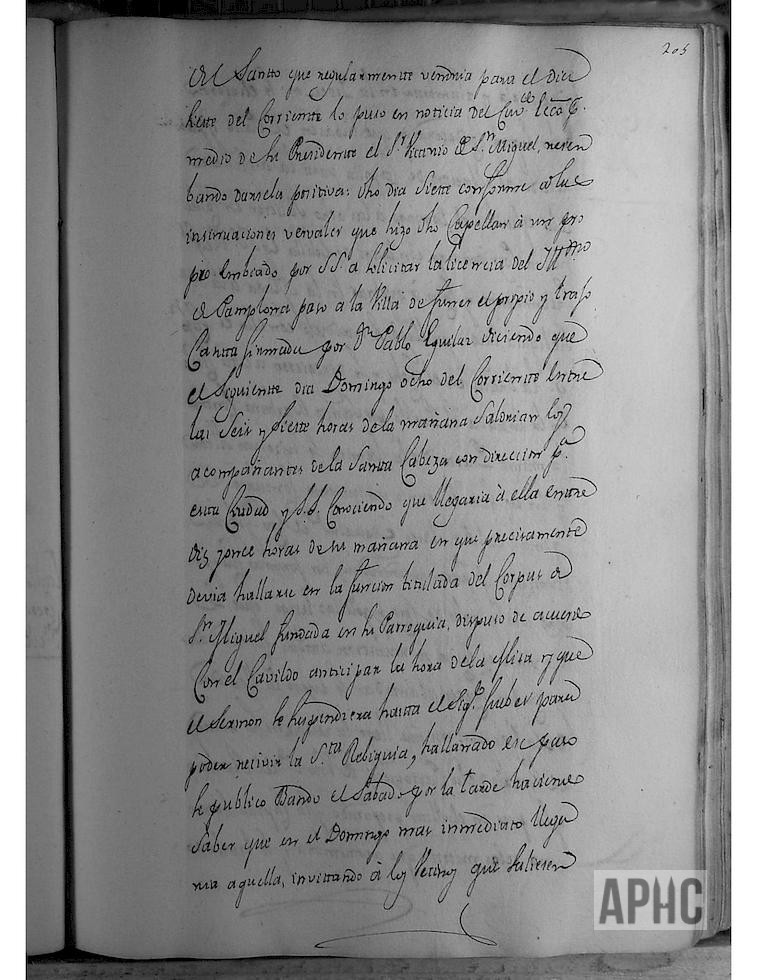 205
del Santto que regularmentte vendria para el dia
siette del Corriente lo puso en noticia del Cav.do Ecc.o p.r
medio de su Presidentte el S.r Vicario de S.n Miguel, reser
bando darsela positiva: dho dia siette conforme a las
insinuaciones vervales que hizo dho Capellan à un pro
pio embiado por SS.a a solicitar la licencia del Ill.mo
de Pamplona paso a la Villa de funes el propio y trajo
Cartta firmada por D.n Pablo Eguilaz diciendo que
el siguientte dia Domingo ocho del Corriente entre
las Seis y Siette horas de la mañana Saldrian los
acompañantes de la Santa Cabeza con direccion p.a
esta Ciudad y S.S. Conociendo que llegaria à ella entre
diez y once horas de su mañana en que precisamente
devia hallarse en la funcion titulada del Corpus de
S.n Miguel fundada en su Parroquia, dispuso de acuerdo
Con el Cavildo anticipar la hora de la Misa y que
el Sermon se suspendiera hasta el Sig.te Juebes para
poder recivir la S.ta Reliquia, hallanado ese paso
se publico Bando el Sabado por la tarde haciendo
Saber que en el Domingo mas inmediato llega
ria aquella, invittando à los Vecinos que saliesen
APHC